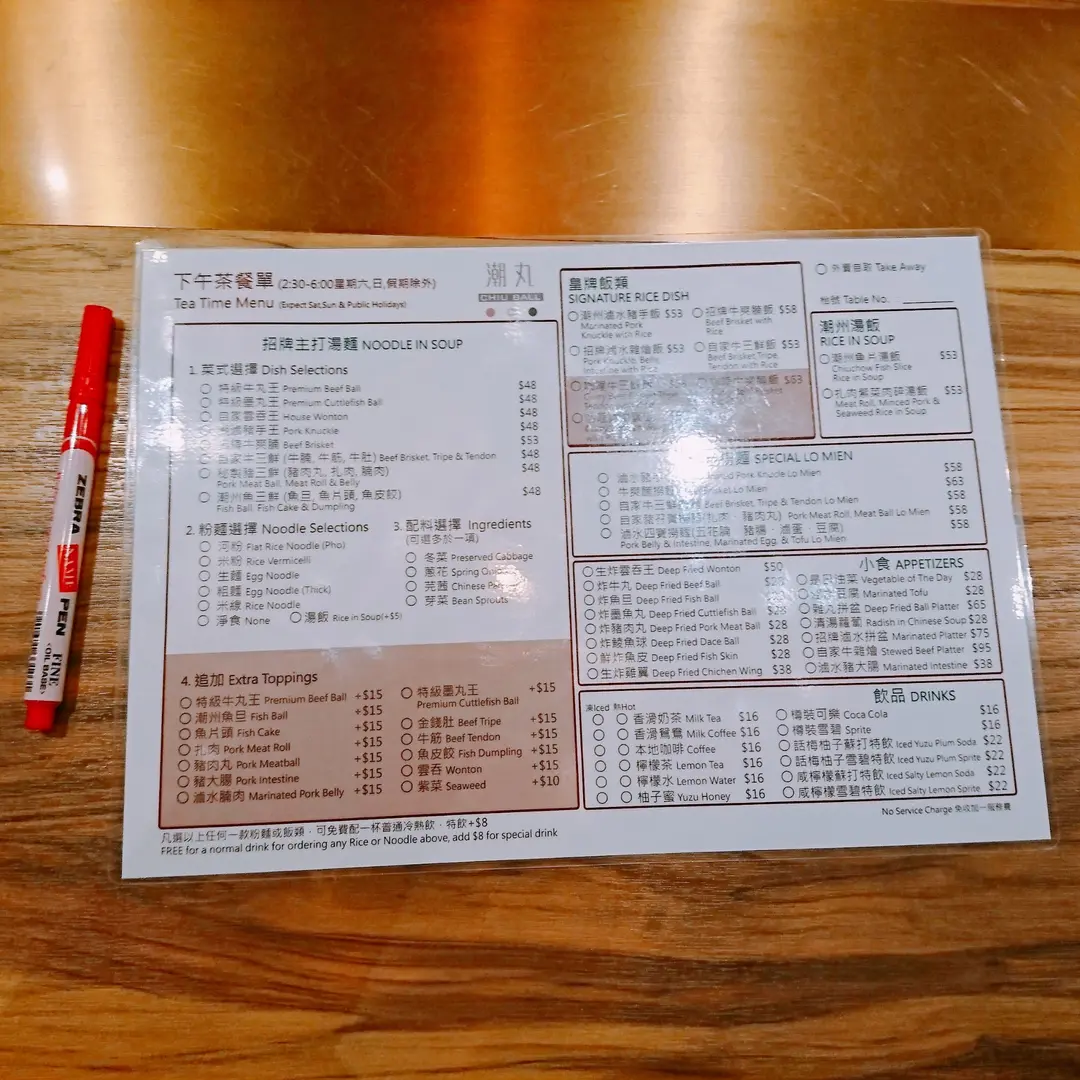 下午茶餐單 (2:30-6:00星期六,日,假期除外)
Tea Time Menu (Expect Sat,Sun & Public Holidays)
潮丸
CHIU BALL
招牌主打湯麵 NOODLE IN SOUP
1. 菜式選擇 Dish Selections
特級牛丸王 Premium Beef Ball $48
特級墨丸王 Premium Cuttlefish Ball $48
自家雲吞王 House Wonton $48
豬手王 Pork Knuckle $48
招牌牛䐁腩 Beef Brisket $53
自家牛三鮮 (牛腩, 牛筋, 牛肚) Beef Brisket, Tripe & Tendon $48
秘製豬三鮮 (豬肉丸, 扎肉, 腩肉) $48
Pork Meat Ball, Meat Roll & Belly
潮州魚三鮮 (魚旦, 魚片頭, 魚皮餃) $48
Fish Ball, Fish Cake & Dumpling
2. 粉麵選擇 Noodle Selections
河粉 Flat Rice Noodle (Pho)
米粉 Rice Vermicelli
生麵 Egg Noodle
粗麵 Egg Noodle (Thick)
米線 Rice Noodle
淨食 None 湯飯 Rice in Soup(+$5)
3. 配料選擇 Ingredients
(可選多於一項)
冬菜 Preserved Cabbage
蔥花 Spring
芫茜 Chinese
芽菜 Bean Sprouts
4. 追加 Extra Toppings
特級牛丸王 Premium Beef Ball +$15
潮州魚旦 Fish Ball +$15
魚片頭 Fish Cake +$15
扎肉 Pork Meat Roll +$15
豬肉丸 Pork Meatball +$15
豬大腸 Pork Intestine +$15
滷水腩肉 Marinated Pork Belly +$15
特級墨丸王 +$15
Premium Cuttlefish Ball
金錢肚 Beef Tripe +$15
牛筋 Beef Tendon +$15
魚皮餃 Fish Dumpling +$15
雲吞 Wonton +$15
紫菜 Seaweed +$10
凡選以上任何一款粉麵或飯類，可免費配一杯普通冷熱飲，特飲+$8
FREE for a normal drink for ordering any Rice or Noodle above, add $8 for special drink
皇牌飯類
SIGNATURE RICE DISH
潮州滷水豬手飯 $53
Marinated Pork
Knuckle with Rice
招牌牛䐁腩飯 $58
Beef Brisket with
Rice
招牌滷水雜燴飯 $53
Pork Knuckle, Belly,
Intestine with Rice
自家牛三鮮飯 $53
Beef Brisket,Tripe,
Tendon with Rice
$53
外賣自取 Take Away
枱號 Table No.
潮州湯飯
RICE IN SOUP
潮州魚片湯飯 $53
Chiuchow Fish Slice
Rice in Soup
扎肉紫菜肉碎湯飯 $53
Meat Roll, Minced Pork &
Seaweed Rice in Soup
撈麵 SPECIAL LO MIEN
滷水豬 Pork Knuckle Lo Mien $58
牛䐁腩撈麵 Brisket Lo Mien $63
自家牛三鮮 Beef Brisket, Tripe & Tendon Lo Mien $58
自家豬孖寶撈麵(扎肉、豬肉丸) Pork Meat Roll, Meat Ball Lo Mien $58
滷水四寶撈麵(五花腩、豬腸、滷蛋、豆腐) $58
Pork Belly & Intestine, Marinated Egg, & Tofu Lo Mien
小食 APPETIZERS
生炸雲吞王 Deep Fried Wonton $50
炸牛丸 Deep Fried Beef Ball
炸魚旦 Deep Fried Fish Ball
炸墨魚丸 Deep Fried Cuttlefish Ball $28
炸豬肉丸 Deep Fried Pork Meat Ball $28
炸鯪魚球 Deep Fried Dace Ball $28
鮮炸魚皮 Deep Fried Fish Skin $28
生炸雞翼 Deep Fried Chichen Wing $38
是日油菜 Vegetable of The Day $28
滷水豆腐 Marinated Tofu $28
雜丸拼盆 Deep Fried Ball Platter $65
清湯蘿蔔 Radish in Chinese Soup $28
招牌滷水拼盆 Marinated Platter $75
自家牛雜燴 Stewed Beef Platter $95
滷水豬大腸 Marinated Intestine $38
飲品 DRINKS
凍Iced 熱Hot
香滑奶茶 Milk Tea $16
香滑鴛鴦 Milk Coffee $16
本地咖啡 Coffee $16
檸檬茶 Lemon Tea $16
檸檬水 Lemon Water $16
柚子蜜 Yuzu Honey $16
樽裝可樂 Coca Cola $16
樽裝雪碧 Sprite $16
話梅柚子蘇打特飲 Iced Yuzu Plum Soda $22
話梅柚子雪碧特飲 Iced Yuzu Plum Sprite $22
咸檸檬蘇打特飲 Iced Salty Lemon Soda $22
咸檸檬雪碧特飲 Iced Salty Lemon Sprite $22
No Service Charge 免收加一服務費
ZEBRA
PEN
FINE
<OIL BASE>